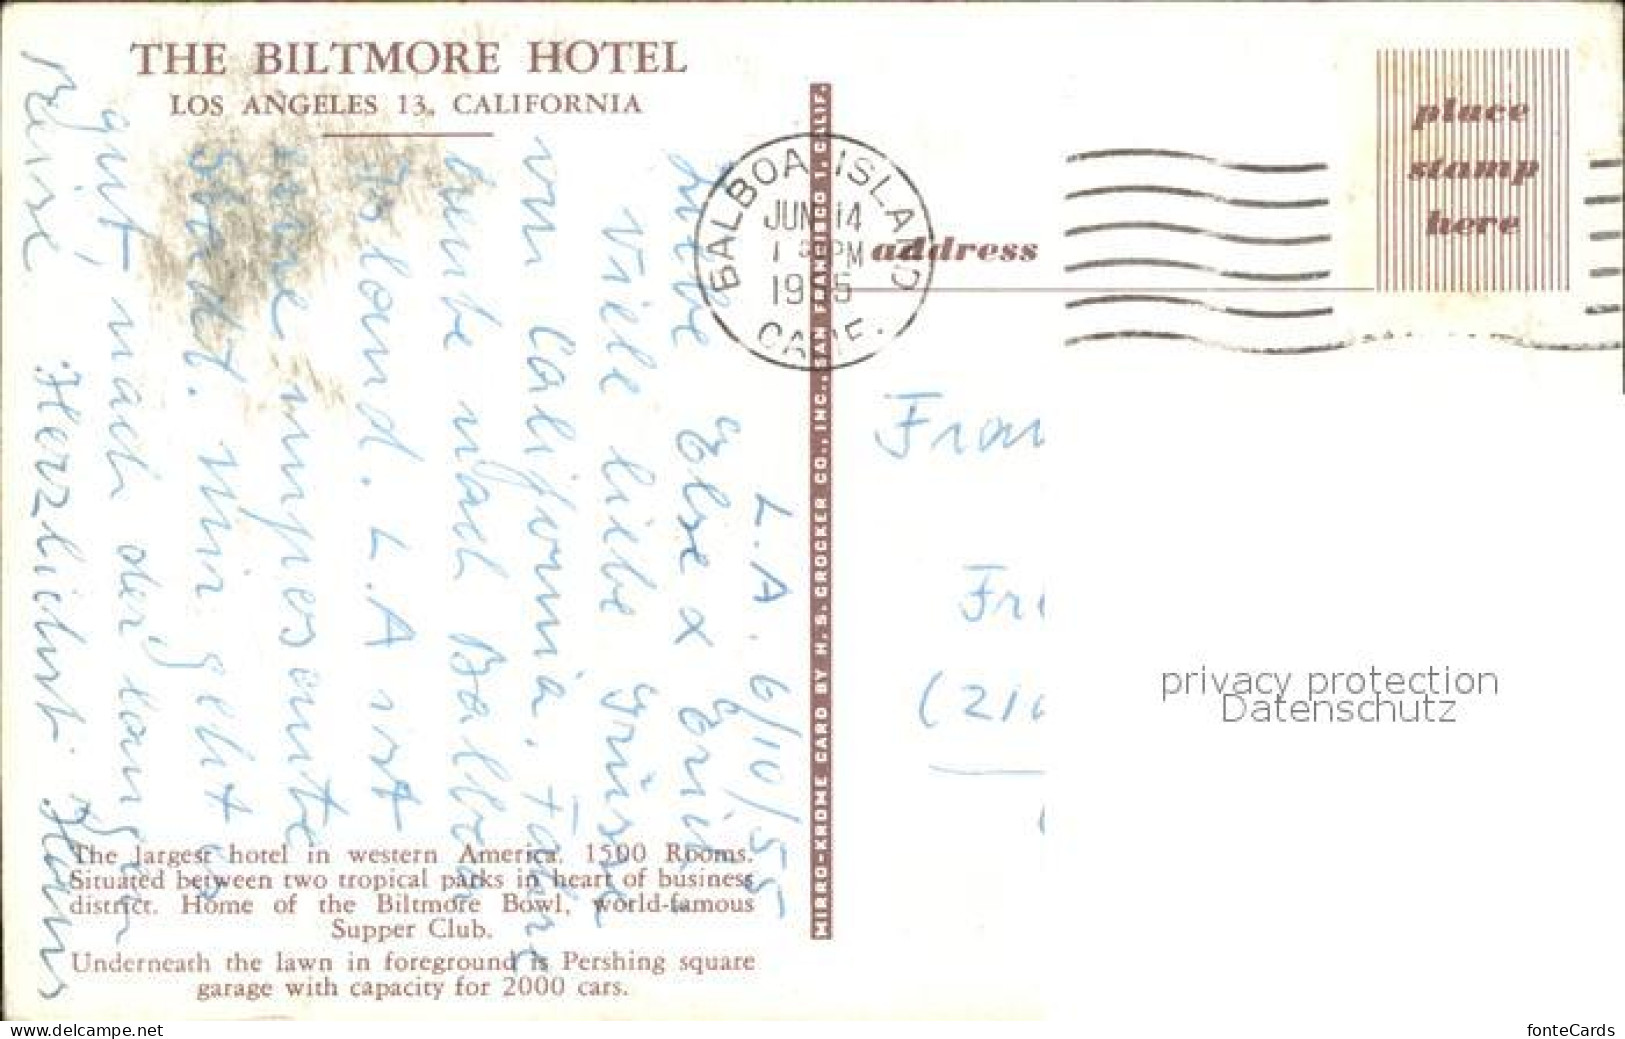 THE BILTMORE HOTEL
LOS ANGELES 13, CALIFORNIA
L.A. 6/10/55
Liebe Else & Erich,
Viele liebe Grüsse
von California. Fahre
heute nach Balboa
Island. L.A ist
eine imposante
Stadt. Mir geht es
gut, nach der langen
Reise. Herzlichst Hans
The largest hotel in western America. 1500 Rooms.
Situated between two tropical parks in heart of business
district. Home of the Biltmore Bowl, world-famous
Supper Club.
Underneath the lawn in foreground is Pershing square
garage with capacity for 2000 cars.
MIRRO-KROME CARD BY H.S. CROCKER CO., INC., SAN FRANCISCO 1, CALIF.
BALBOA ISLAND
JUN 14
PM
CALIF.
address
place
stamp
here
(21
privacy protection
Datenschutz
www.delcampe.net
fonteCards